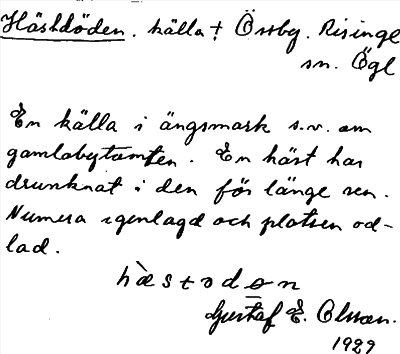 Hästdöden. källa † Össby. Risinge
sn. Ögl
En källa i ängsmark s.v. om
gamlabytomten. En häst har
drunknat i den för länge sen.
Numera igenlagd och platsen od-
lad.
hæstodøn
Gustaf E. Olsson.
1929